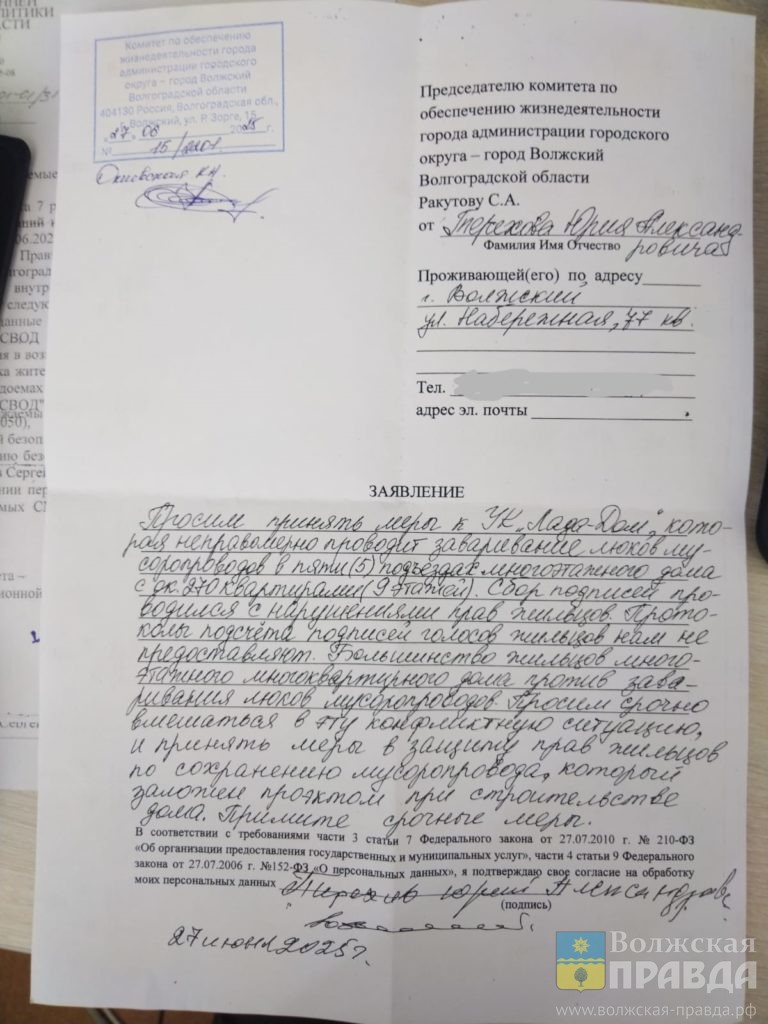 Комитет по обеспечению
жизнедеятельности города
администрации городского
округа – город Волжский
Волгоградской области
404130 Россия, Волгоградская обл.,
г. Волжский, ул. Р. Зорге, 15
„27" 06 2025 г.
№ 15/2201
Председателю комитета по
обеспечению жизнедеятельности
города администрации городского
округа – город Волжский
Волгоградской области
Ракутову С.А.
от Терехова Юрия Александ
Фамилия Имя Отчество
ровича
Проживающей(его) по адресу
г. Волжский
ул. Набережная, 77 кв.
Тел.
адрес эл. почты
ЗАЯВЛЕНИЕ
Просим принять меры к УК „Лада-Дом", кото-
рая неправомерно проводит заваривание люков му-
соропроводов в пяти (5) подъездах многоэтажного дома
с ок. 270 квартирами (9 этажей). Сбор подписей про-
водился с нарушениями прав жильцов. Прото-
колы подсчёта подписей голосов жильцов нам не
предоставляют. Большинство жильцов много-
этажного многоквартирного дома против зава-
ривания люков мусоропроводов. Просим срочно
вмешаться в эту конфликтную ситуацию,
и принять меры в защиту прав жильцов
по сохранению мусоропровода, который
заложен проэктом при строительстве
дома. Примите срочные меры.
В соответствии с требованиями части 3 статьи 7 Федерального закона от 27.07.2010 г. № 210-ФЗ
«Об организации предоставления государственных и муниципальных услуг», части 4 статьи 9 Федерального
закона от 27.07.2006 г. №152-ФЗ «О персональных данных», я подтверждаю свое согласие на обработку
моих персональных данных Терехов Юрий Александров
(подпись)
27 июня 2025 г.
Волжская
ПРАВДА
www.волжская-правда.рф